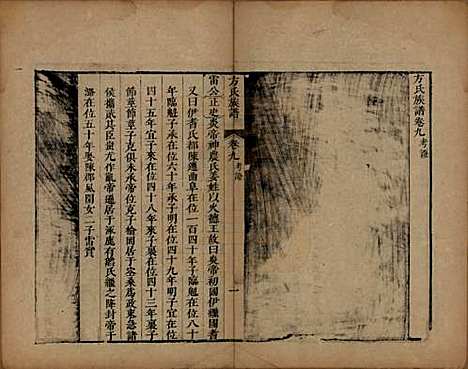 方氏族譜卷九考證
方氏族譜
卷九考證
一
雷公正史炎帝神農氏姜姓以火德王故曰炎帝初國伊繼國耆
又曰伊耆氏都陳遷曲阜在位一百四十年子臨魁在位八十
年臨魁子承在位六十年子明在位四十九年明子宜在位
四十五年宜子來在位四十八年來子裏在位四十三年裏子
節莖節莖子克俱未承帝位克子榆罔居于
政束急諸
侯攜貳其臣蚩尤作亂帝遜居于涿鹿有熊氏繼之降封帝于
潞在位五十年娶陳鄉氏
女二子雷